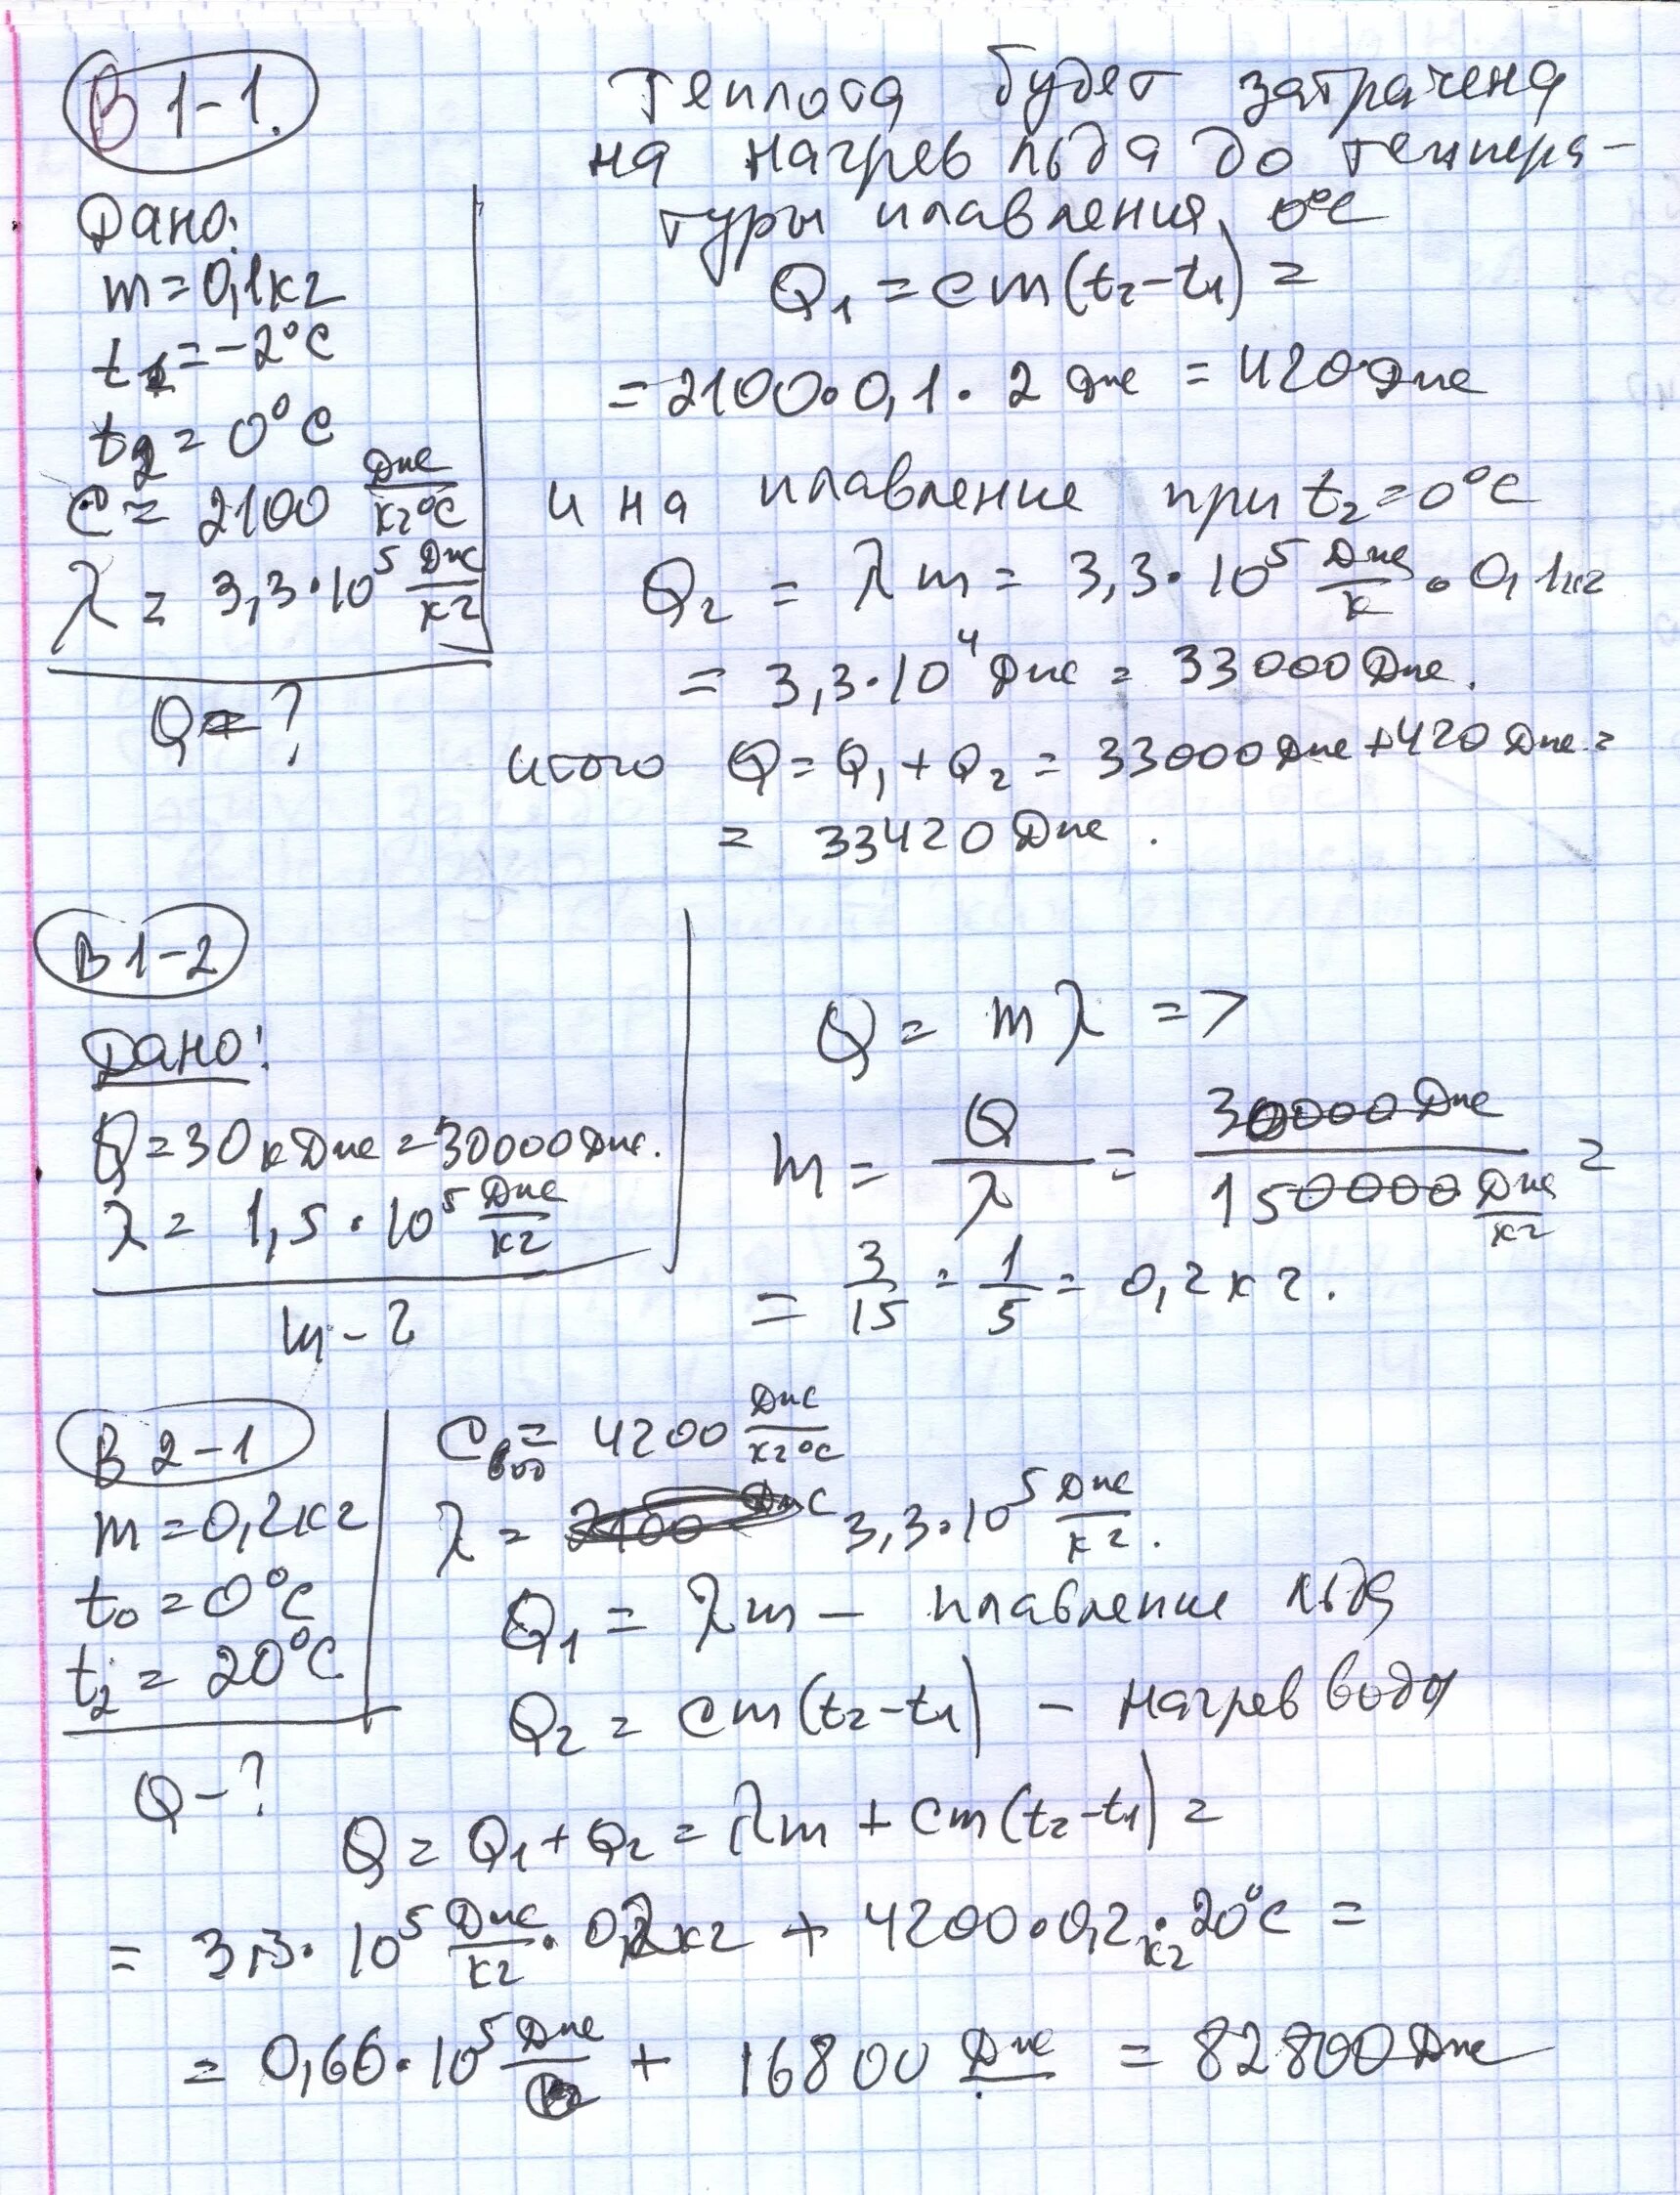 В 1-1.
Дано:
m = 0,1 кг
t₁ = -2°С
t₂ = 0°С
С = 2100 Дж/кг°С
λ = 3,3·10⁵ Дж/кг
Q = ?
Теплота будет затрачена
на нагрев льда до темпера-
туры плавления, 0°С
Q₁ = cm(t₂-t₁) =
= 2100·0,1·2 Дж = 420 Дж
и на плавление при t₂ = 0°С
Q₂ = λm = 3,3·10⁵ Дж/к · 0,1 кг
= 3,3·10⁴ Дж = 33000 Дж.
итого Q = Q₁ + Q₂ = 33000 Дж + 420 Дж =
= 33420 Дж.
В 1-2
Дано:
Q = 30 кДж = 30000 Дж.
λ = 1,5·10⁵ Дж/кг
m - ?
Q = mλ =>
m = Q/λ = 30000 Дж / 150000 Дж/кг =
= 3/15 = 1/5 = 0,2 кг.
В 2-1
m = 0,2 кг
t₀ = 0°С
t₂ = 20°С
Q - ?
Свод = 4200 Дж/кг°С
λ = 2100 Дж 3,3·10⁵ Дж/кг.
Q₁ = λm - плавление льда
Q₂ = cm(t₂-t₁) - нагрев воды
Q = Q₁ + Q₂ = λm + cm(t₂-t₁) =
= 3,3·10⁵ Дж/кг · 0,2 кг + 4200·0,2 кг·20°С =
= 0,66·10⁵ Дж + 16800 Дж = 82800 Дж